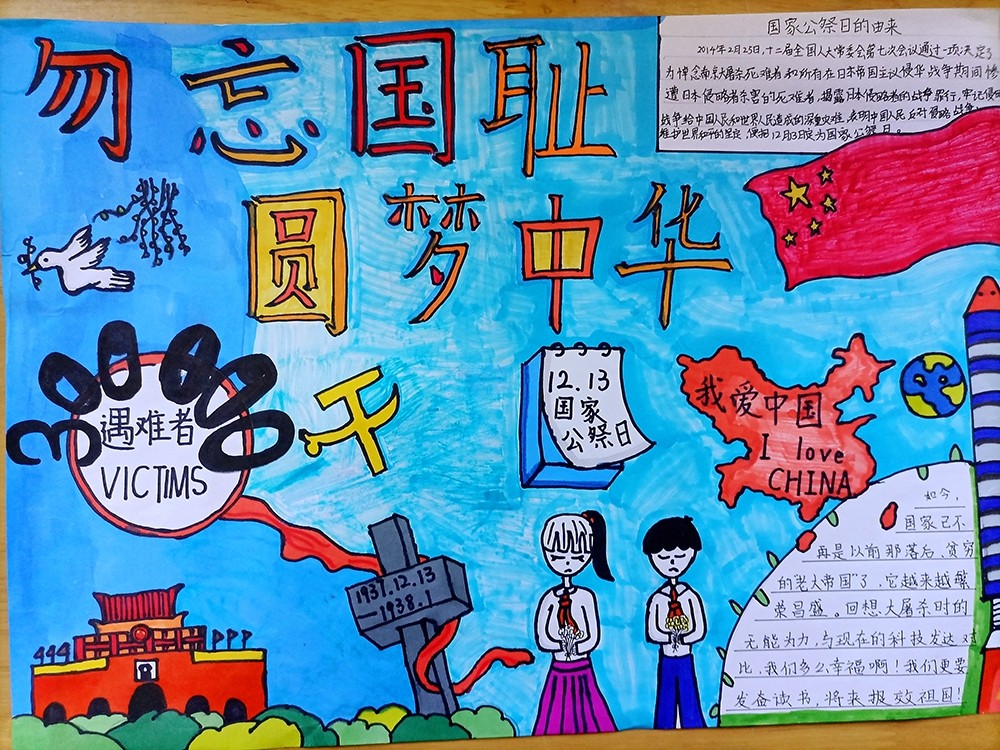 勿忘国耻
圆梦中华
国家公祭日的由来
2014年2月25日,十二届全国人大常委会第七次会议通过一项决定了
为悼念南京大屠杀死难者和所有在日本帝国主义侵华战争期间惨
遭日本侵略者杀害的死难者,揭露日本侵略者的战争罪行,牢记侵
战争给中国人民和世界人民造成的深重灾难,表明中国人民反对侵略战争
维护世界和平的坚定
12月13日定为国家公祭日。
300000
遇难者
VICTIMS
12.13
国家
公祭日
我爱中国
I love
CHINA
1937.12.13
—1938.1
如今,
国家已不
再是以前那落后、贫穷
的老大帝国"了,它越来越繁
荣昌盛。回想大屠杀时的
无能为力,与现在的科技发达对
比,我们多么幸福啊!我们更要
发奋读书,将来报效祖国!